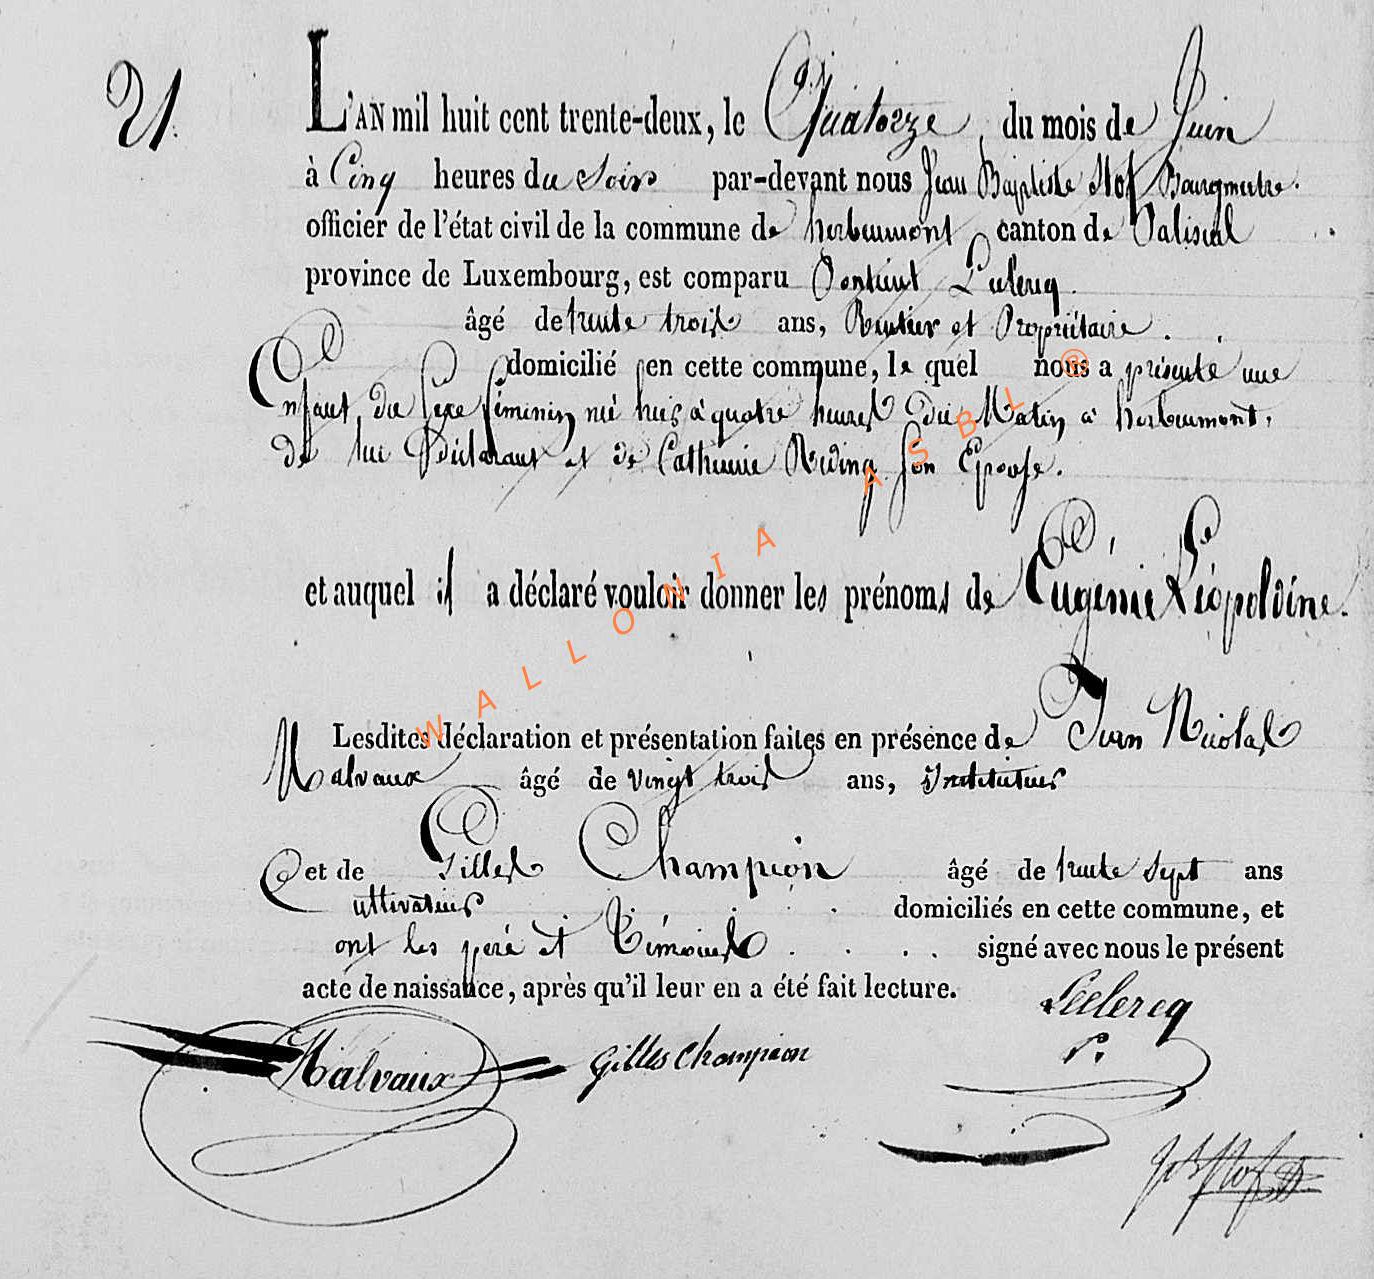 21.
L'AN mil huit cent trente-deux, le Quatorze du mois de Juin
à Cinq heures du Soir par-devant nous Jean Baptiste Bourgmestre.
officier de l'état civil de la commune de herbeumont canton de Paliseul
province de Luxembourg, est comparu Pontient Leclercq.
âgé de trente trois ans, Rentier et Propriétaire.
domicilié en cette commune, le quel nous a présenté une
Enfant du Sexe féminin né hier à quatre heures du Matin à herbeumont,
de lui Déclarant et de Catherine Son Epouse.
et auquel il a déclaré vouloir donner les prénoms de Eugénie Léopoldine.
Lesdites déclaration et présentation faites en présence de Jean Nicolas
Malvaux âgé de vingt trois ans, Instituteur
et de Gilles Champion âgé de trente Sept ans
Cultivateur domiciliés en cette commune, et
ont les peré et Témoins signé avec nous le présent
acte de naissance, après qu'il leur en a été fait lecture.
Leclercq
P.
Malvaux Gilles Champion
WALLONIA ASBL ®